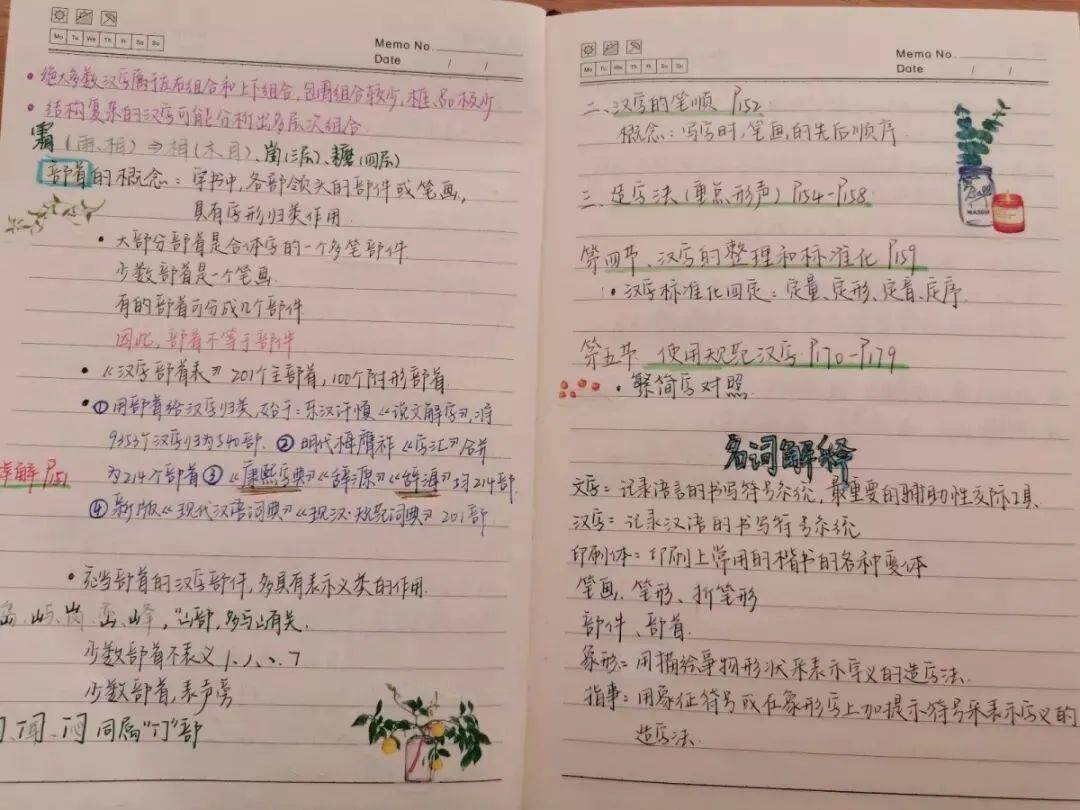 Mo Tu We Th Fr Sa Su
Memo No.
Date / /
• 绝大多数汉字属于左右组合和上下组合,包围组合较少,框、品极少
• 结构复杂的汉字可能分析出多层次组合
霜(雨、相)⇒相(木目)、(三层)、(四层)
部首的概念:字书中,各部领头的部件或笔画,
具有字形归类作用
• 大部分部首是合体字的一个多笔部件
少数部首是一个笔画
有的部首可分成几个部件
因此,部首不等于部件
• 《汉字部首表》201个主部首,100个附形部首
• ①用部首给汉字归类,始于:东汉许慎《说文解字》,将
9353个汉字归为540部. ②明代梅膺祚《字汇》合并
为214个部首③《康熙字典》《辞源》《辞海》均214部
详解 P151
④新版《现代汉语词典》《现汉·规范词典》201部
• 充当部首的汉字部件,多具有表示义类的作用
岛、屿、岗、峦、峰,“山”部,多与山有关.
少数部首不表义
少数部首,表声旁
问、闻、闷 同属“门”部
Mo Tu We Th Fr Sa Su
Memo No.
Date / /
二、汉字的笔顺 P152
概念:写字时,笔画的先后顺序
三、造字法(重点形声)P154-P158
第四节、汉字的整理和标准化 P159
• 汉字标准化四定:定量、定形、定音、定序
第五节 使用规范汉字 P170-P179
• 繁简字对照
Ball
MASON
名词解释
文字:记录语言的书写符号系统,最重要的辅助性交际工具.
汉字:记录汉语的书写符号系统
印刷体:印刷上常用的楷书的各种变体
笔画、笔形、折笔形
部件、部首
象形:用描绘事物形状来表示字义的造字法.
指事:用象征符号或在象形字上加提示符号来表示字义的
造字法.